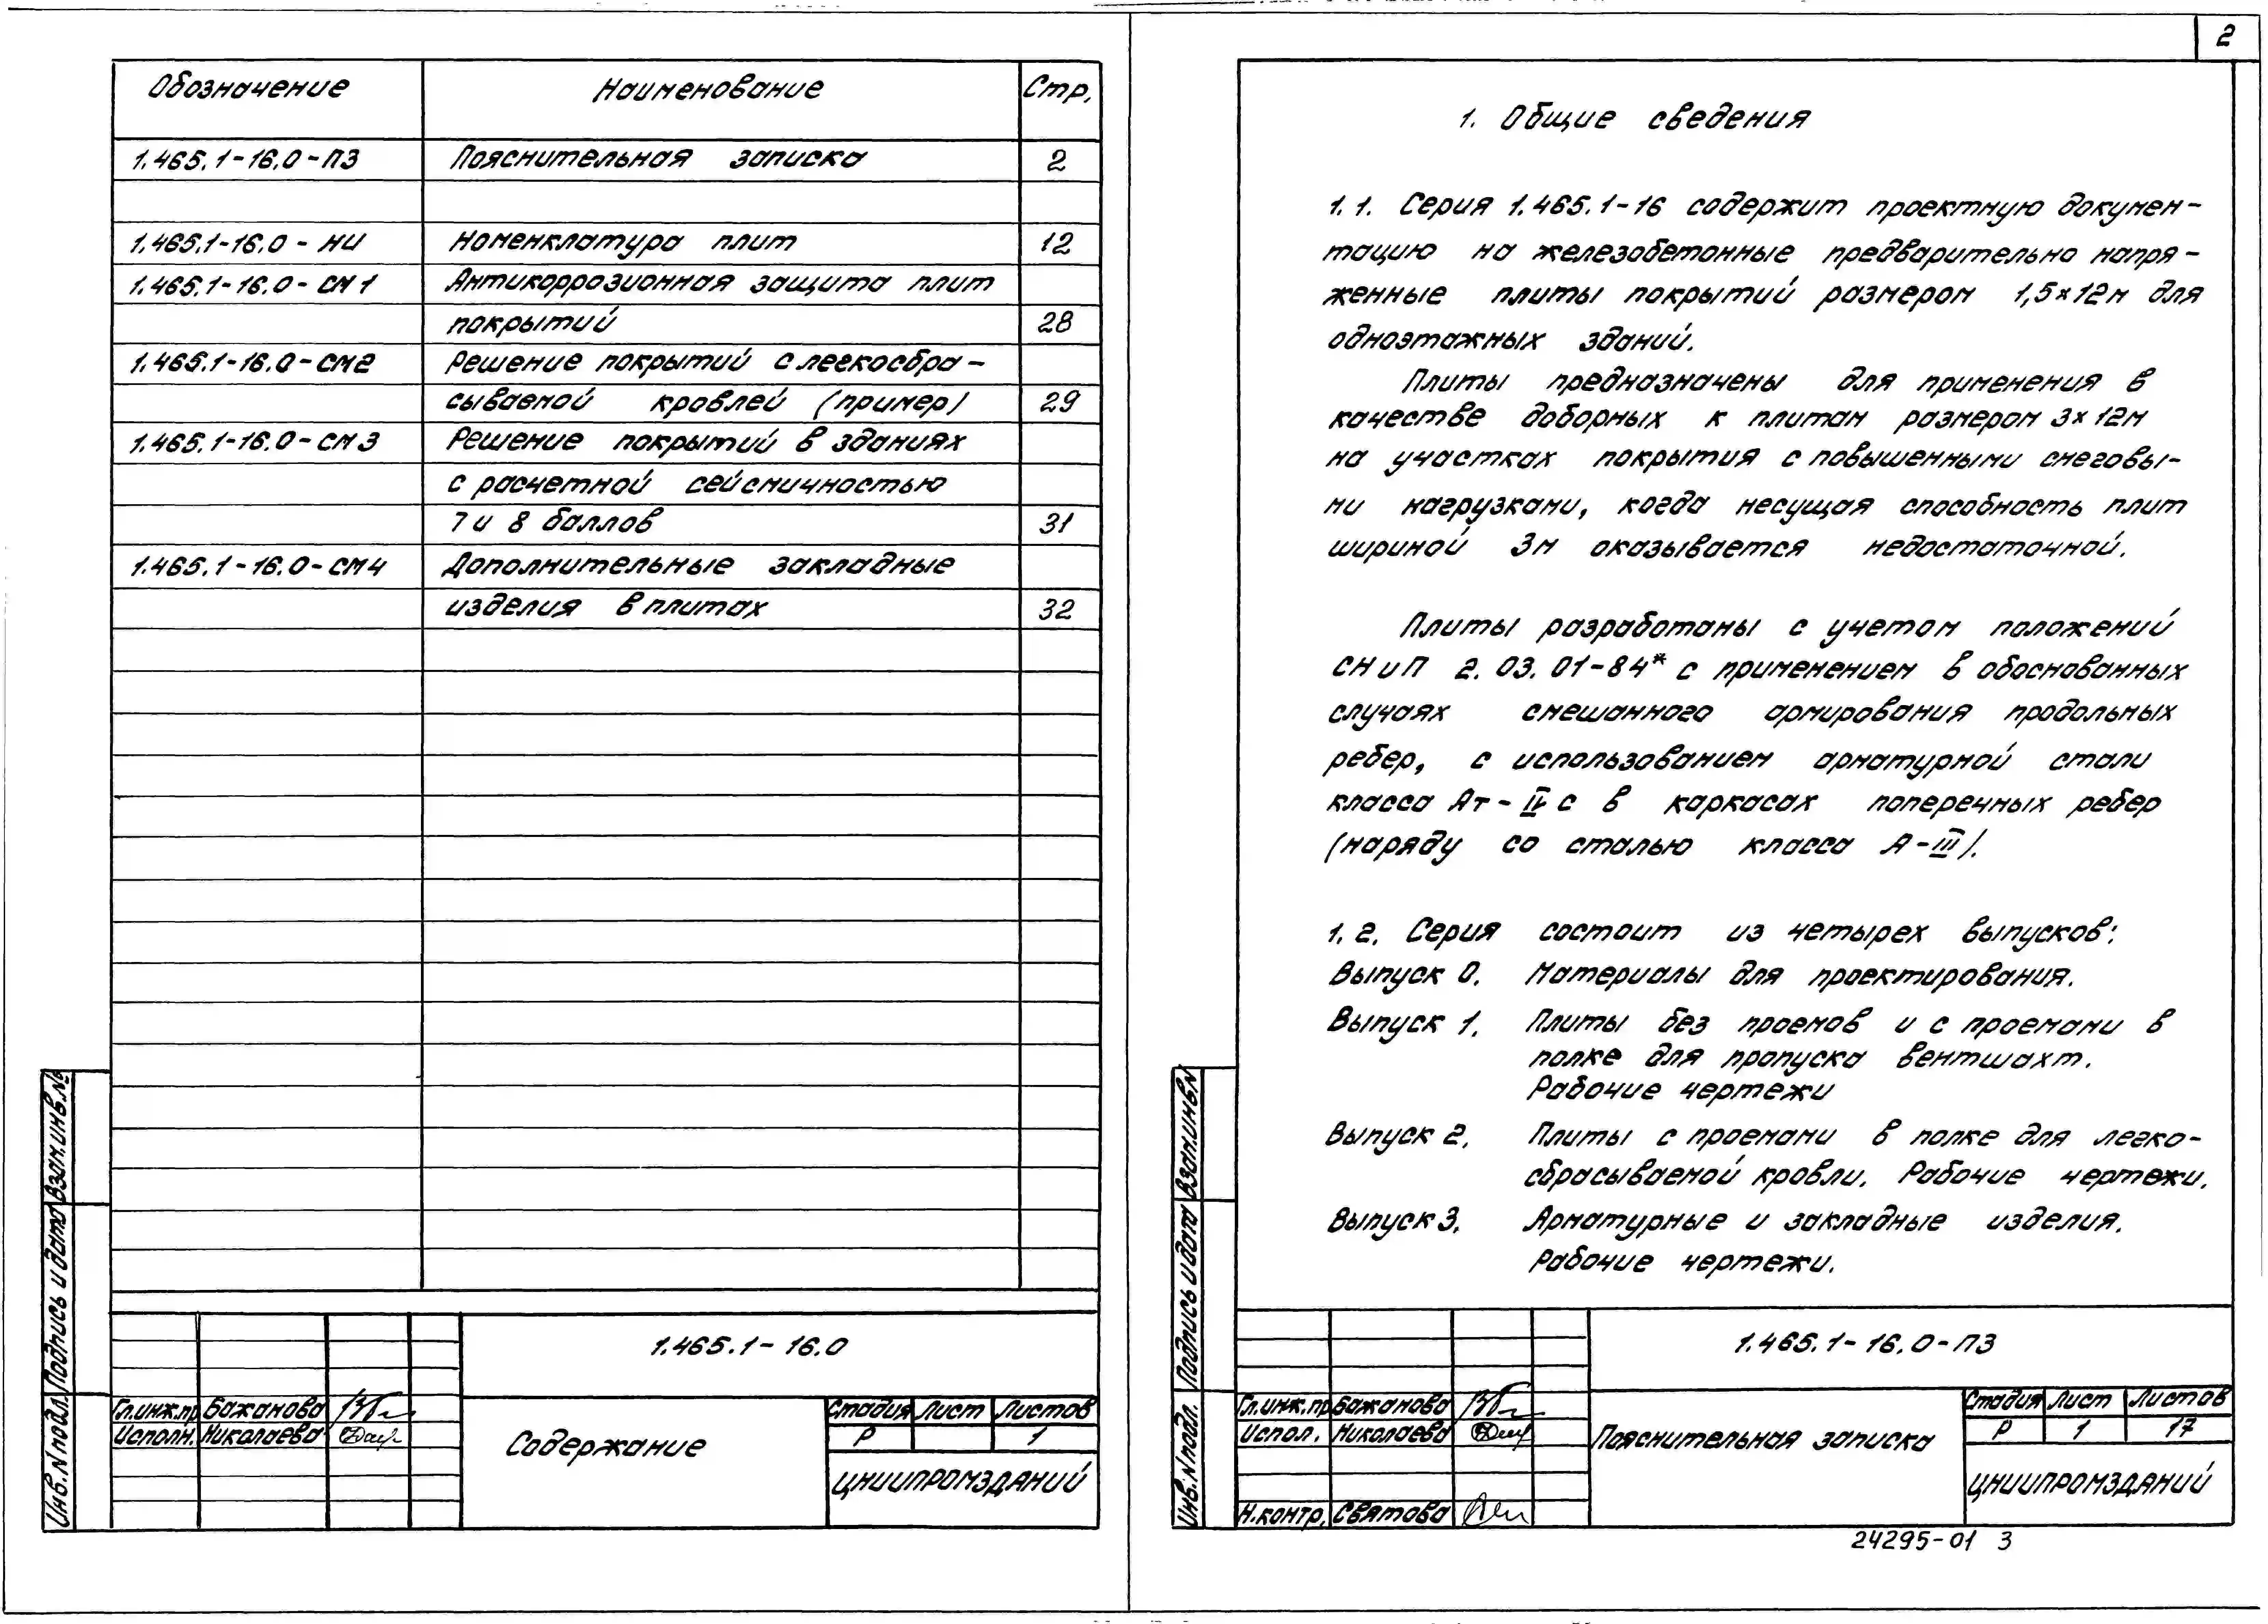 Обозначение Наименование Стр.
1.465.1-16.0-ПЗ Пояснительная записка 2
1.465.1-16.0-НИ Номенклатура плит 12
1.465.1-16.0-СМ1 Антикоррозионная защита плит
покрытий 28
1.465.1-16.0-СМ2 Решение покрытий с легкосбра-
сываемой кровлей (пример) 29
1.465.1-16.0-СМ3 Решение покрытий в зданиях
с расчетной сейсмичностью
7 и 8 баллов 31
1.465.1-16.0-СМ4 Дополнительные закладные
изделия в плитах 32
Взам.инв.№
Подпись и дата
Инв.N подл.
1.465.1-16.0
Гл.инж.пр Бажанова
Исполн. Николаева
Содержание
Стадия Лист Листов
Р 1
ЦНИИПРОМЗДАНИЙ
2
1. Общие сведения
1.1. Серия 1.465.1-16 содержит проектную докумен-
тацию на железобетонные предварительно напря-
женные плиты покрытий размером 1,5×12м для
одноэтажных зданий.
Плиты предназначены для применения в
качестве доборных к плитам размером 3×12м
на участках покрытия с повышенными снеговы-
ми нагрузками, когда несущая способность плит
шириной 3м оказывается недостаточной.
Плиты разработаны с учетом положений
СНиП 2.03.01-84* с применением в обоснованных
случаях смешанного армирования продольных
ребер, с использованием арматурной стали
класса Ат-IVс в каркасах поперечных ребер
(наряду со сталью класса А-III).
1.2. Серия состоит из четырех выпусков:
Выпуск 0. Материалы для проектирования.
Выпуск 1. Плиты без проемов и с проемами в
полке для пропуска вентшахт.
Рабочие чертежи
Выпуск 2. Плиты с проемами в полке для легко-
сбрасываемой кровли. Рабочие чертежи.
Выпуск 3. Арматурные и закладные изделия.
Рабочие чертежи.
Взам.инв.N
Подпись и дата
Инв.N подл.
1.465.1-16.0-ПЗ
Гл.инж.пр Бажанова
Испол. Николаева
Н.контр. Святова
Пояснительная записка
Стадия Лист Листов
Р 1 17
ЦНИИПРОМЗДАНИЙ
24295-01 3